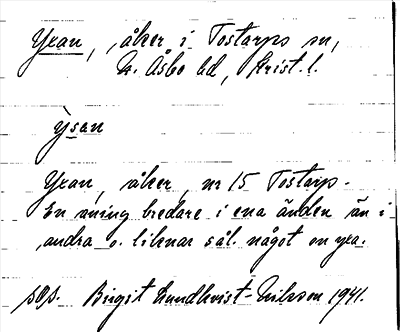 Yxan, åker i Tostarps sn,
N. Åsbo hd, Krist. l.
ỳsan
Yxan, åker, nr 15 Tostarp.
En aning bredare i ena änden än i
andra o. liknar sål. något en yxa.
sOs. Birgit Lundkvist-Nilsson 1941.